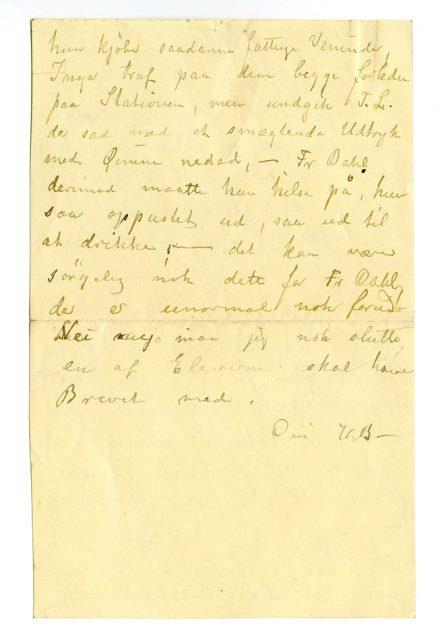 hun kjøbr saadanne fattige Veninder,
Inga traf paa dem begge forleden
paa Stationen, men undgik T. L.
der sad med et smægtende Udtryk
med Øinene nedad, — Fr Dahl
derimod maatte hun hilse på, hun
saa oppustet ud, saa ud til
at drikke, — det kan være
sørgelig nok dette for Fr Dahl,
der er unormal nok forud
Nei maa jeg nok slutte,
en af Eleverne skal have
Brevet med.
Din